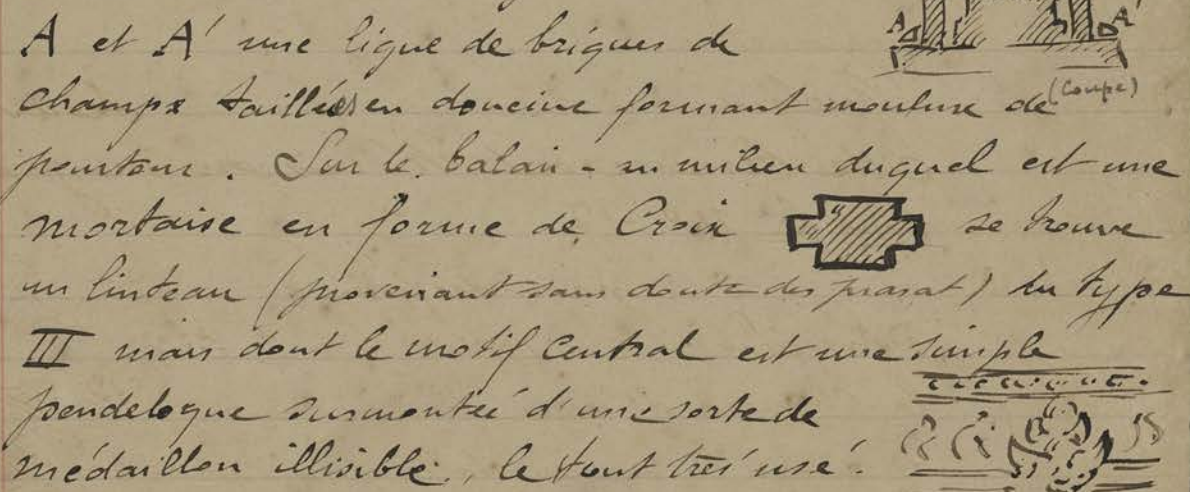 A et A' une ligne de briques de
A A'
champs taillées en doucine formant mouluse de (Coupe)
pourtour. Sur le balain - au milieu duquel est une
mortaise en forme de Croix se trouve
un linteau (provenant sans doute des prasat) du type
III mais dont le motif central est une simple
pendeloque surmontée d'une sorte de
médaillon illisible, le tout très usé.